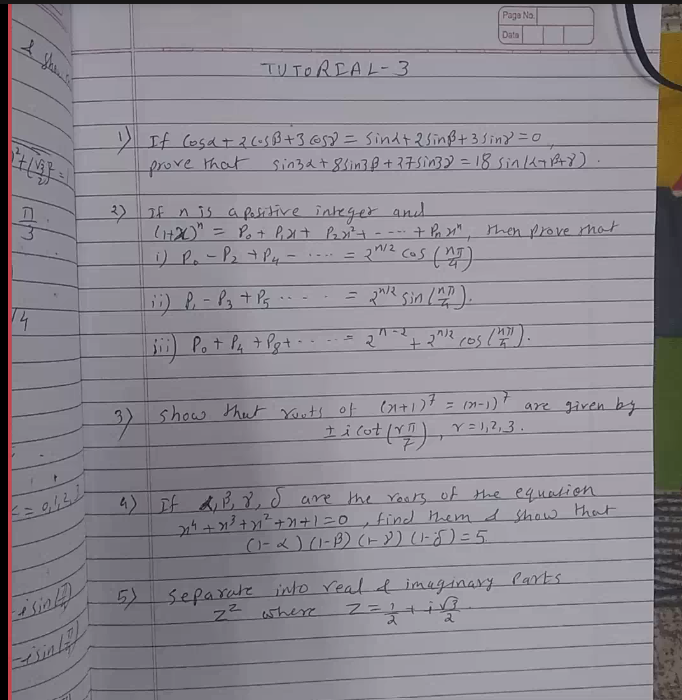 Page No.
Date
TUTORIAL-3
1) If cosα + 2cosβ + 3cosγ = sinα + 2sinβ + 3sinγ = 0,
prove that sin3α + 8sin3β + 27sin3γ = 18 sin(α+β+γ).
2) If n is a positive integer and
(1+x)ⁿ = P₀ + P₁x + P₂x² + - - - - + Pₙxⁿ, then prove that
i) P₀ - P₂ + P₄ - ---- = 2^(n/2) cos(nπ/4)
ii) P₁ - P₃ + P₅ ---- = 2^(n/2) sin(nπ/4).
iii) P₀ + P₄ + P₈ + ---- = 2^(n-2) + 2^(n/2) cos(nπ/4).
3) Show that roots of (x+1)⁷ = (x-1)⁷ are given by
± i cot(rπ/7), r = 1,2,3.
4) If α, β, γ, δ are the roots of the equation
x⁴ + x³ + x² + x + 1 = 0, find them & show that
(1-α)(1-β)(1-γ)(1-δ) = 5
5) Separate into real & imaginary parts
z² where z = 1/2 + i√3/2
π/3